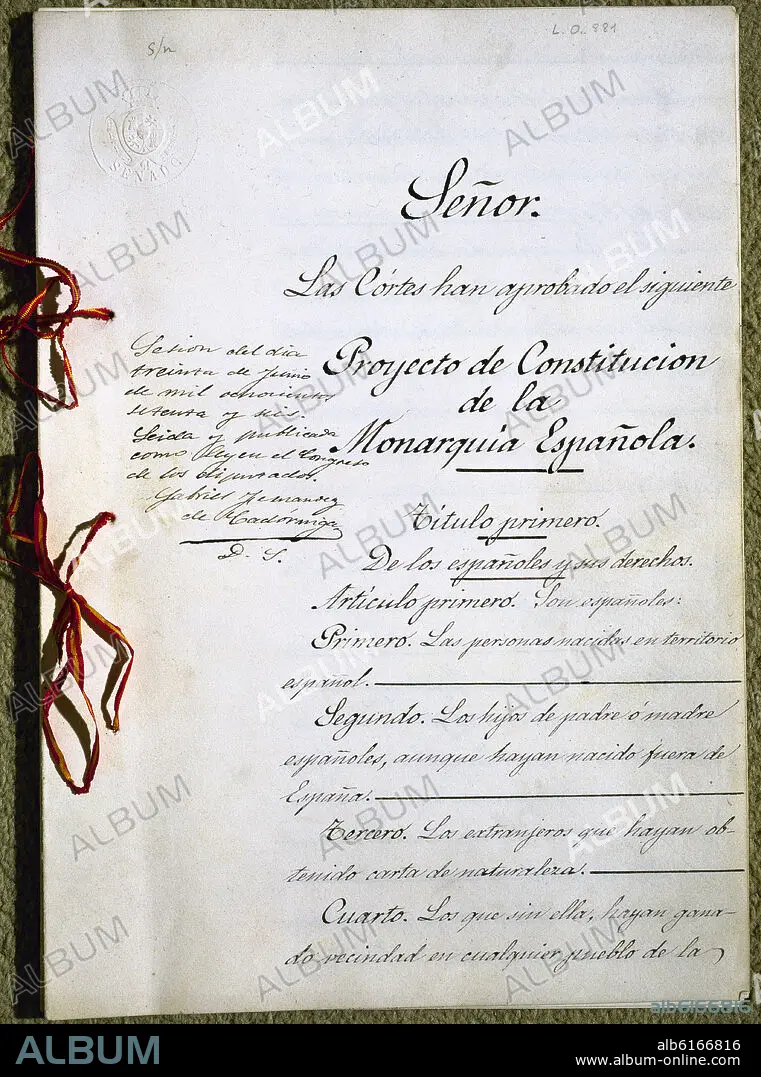 S/n
L.O. 881
SENADO
Señor.
Las Córtes han aprobado el siguiente
Proyecto de Constitucion
de la
Monarquia Española.
Sesion del dia
treinta de Junio
de mil ochocientos
setenta y seis.
Leida y publicada
como Ley en el Congreso
de los diputados.
Gabriel Fernandez
de Cadórniga
D. S.
Título primero.
De los españoles y sus derechos.
Artículo primero. Son españoles:
Primero. Las personas nacidas en territorio
español.
Segundo. Los hijos de padre ó madre
españoles, aunque hayan nacido fuera de
España.
Tercero. Los extranjeros que hayan ob-
tenido carta de naturaleza.
Cuarto. Los que sin ella, hayan gana-
do vecindad en cualquier pueblo de la
ALBUM
alb6166816
alb6166816
www.album-online.com